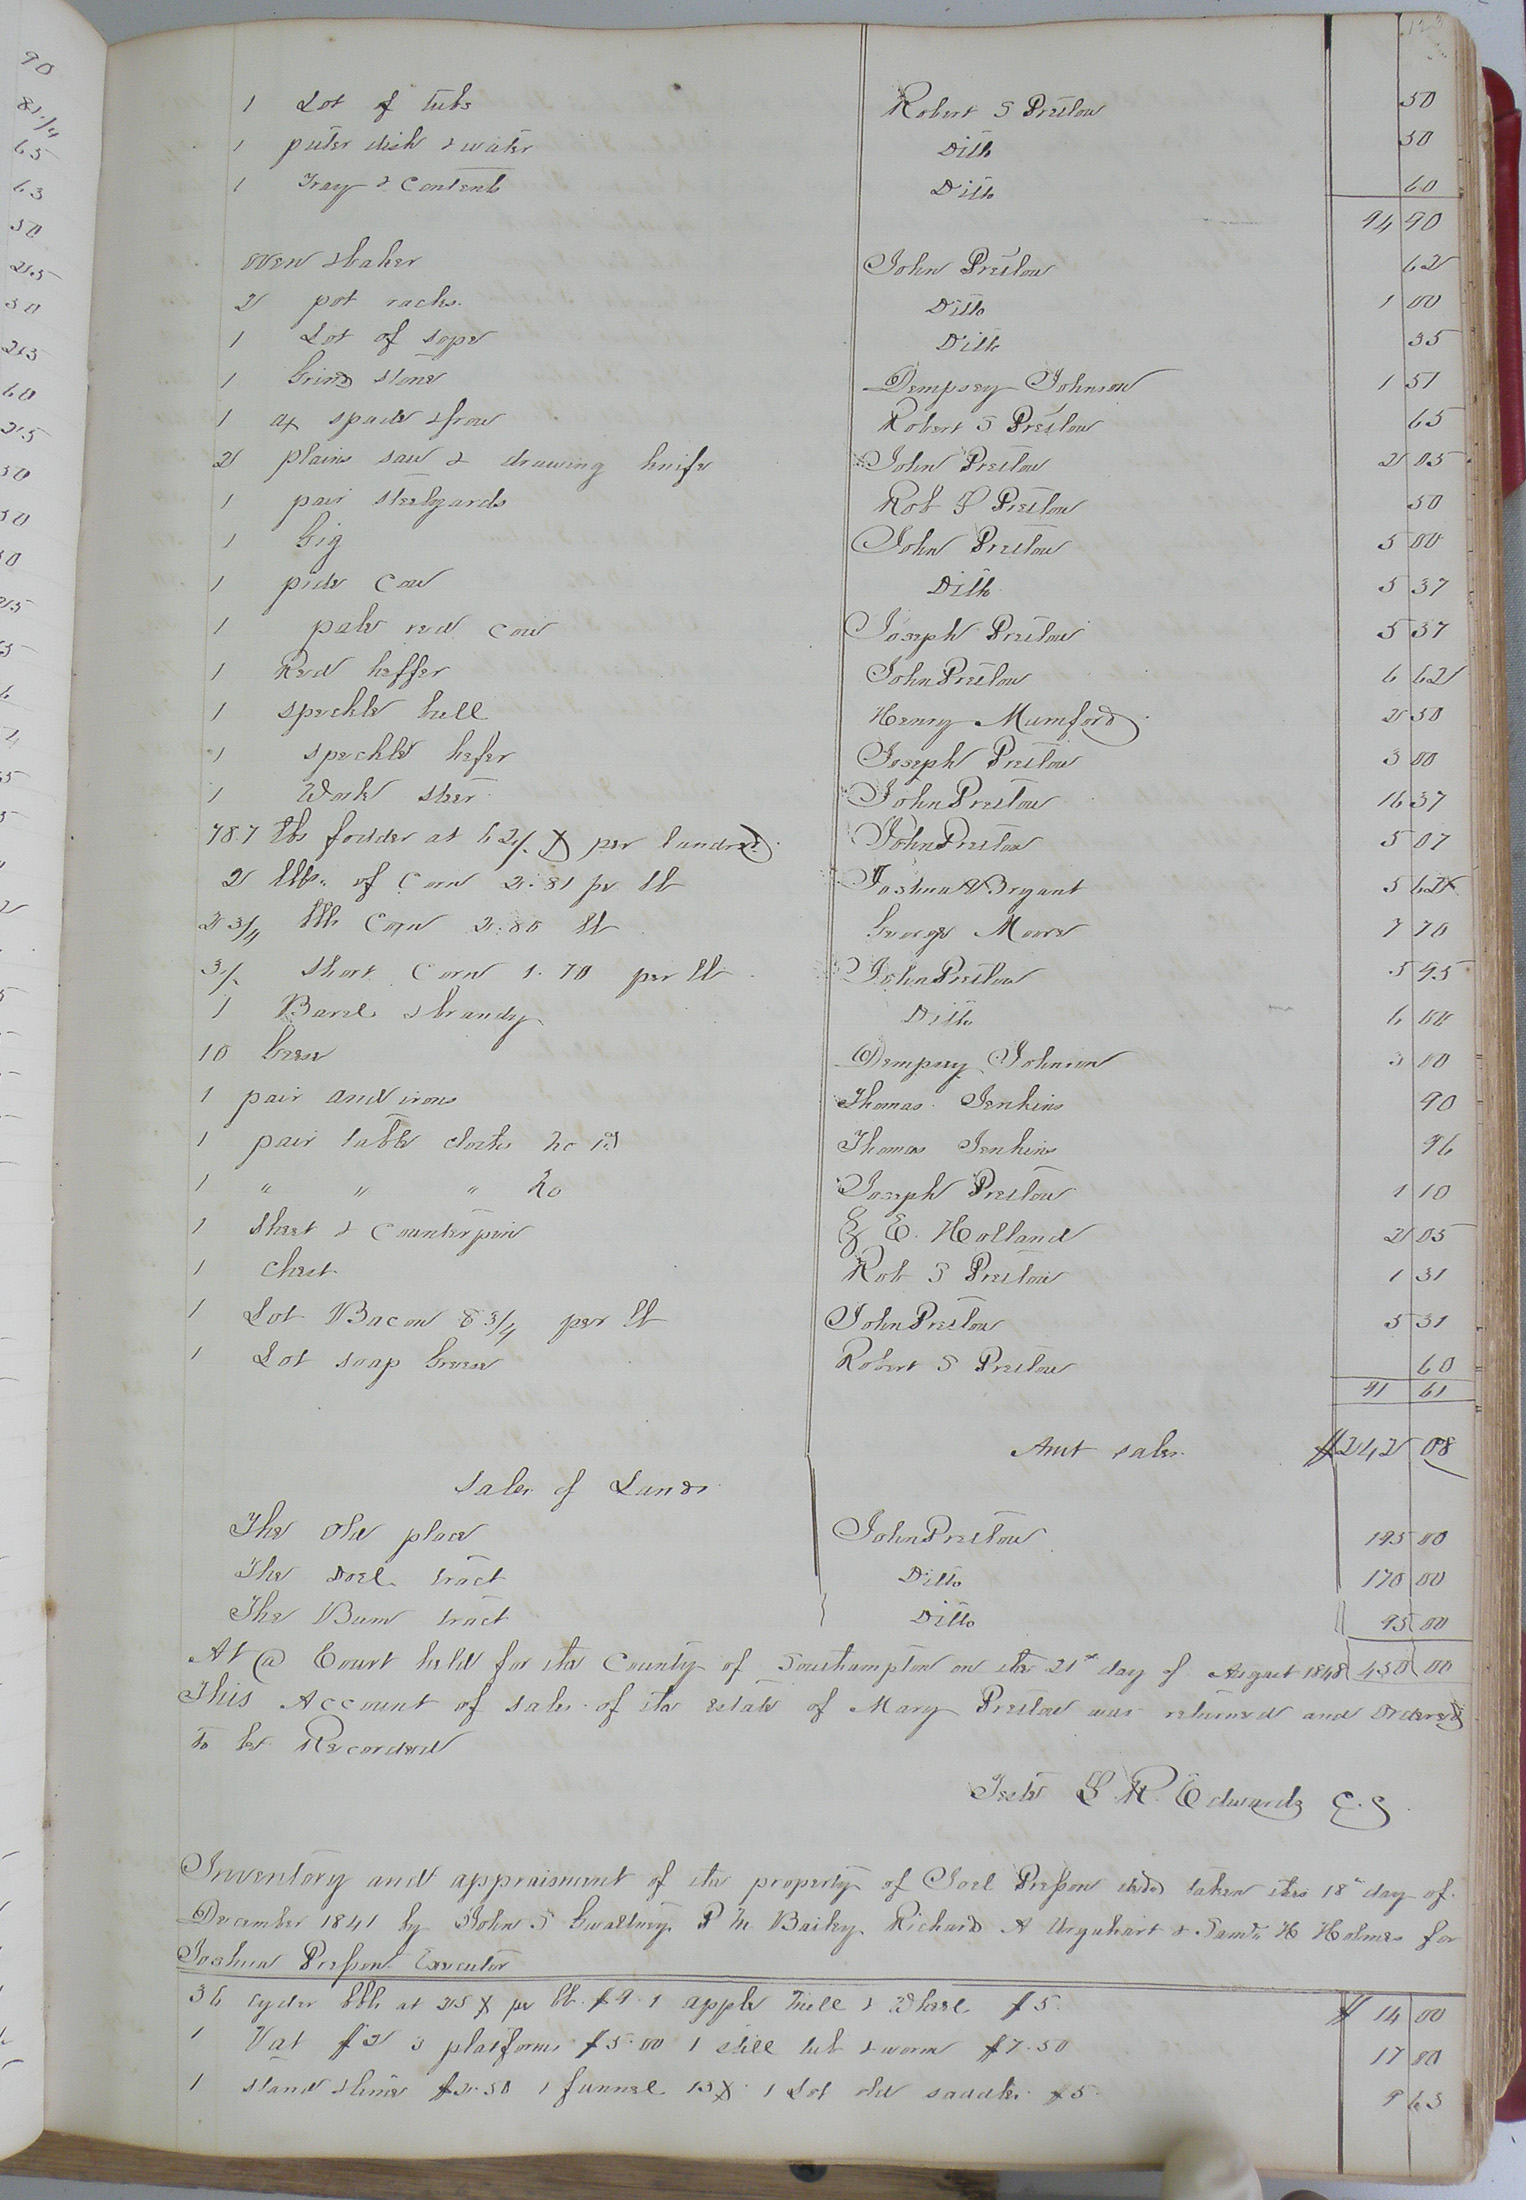 90
81/4
65
63
50
25
30
25
60
25
50
1 Lot of tubs Robert S Preslow 50
1 puter dish & water Ditto 50
1 Tray & Contents Ditto 60
94 90
oven & baker John Preslow 62
2 pot racks Ditto 1 00
1 Lot of sope Ditto 35
1 Grind stone Dempsey Johnson 1 51
1 ax spade & frow Robert S Preslow 65
2 plains saw & drawing knife John Preslow 2 05
1 pair steelyards Rob S Preslow 50
1 Gig John Preslow 5 00
1 pide Cow Ditto 5 37
1 pale red cow Joseph Preslow 5 37
1 Red heffer John Preslow 6 62
1 speckle bull Henry Mumford 2 50
1 speckle hefer Joseph Preslow 3 00
1 Work steer John Preslow 16 37
787 lbs fodder at 62/ per hundred John Preslow 5 07
2 bbls of Corn 2.81 pr bl Joshua Bryant 5 62
2 3/4 bbls Corn 2.80 bl George Moore 7 70
3/ short Corn 1.70 per bl John Preslow 5 95
1 Barel & brandy Ditto 6 00
10 Geese Dempsey Johnson 3 00
1 pair andirons Thomas Jenkins 90
1 pair table cloths no 1 Thomas Jenkins 96
1 " " " Joseph Preslow 1 10
1 Sheet & Counterpin E. Holland 2 05
1 Chest Rob S Preslow 1 31
1 Lot Bacon 8 3/4 per lb John Preslow 5 31
1 Lot soap Grease Robert S Preslow 60
91 61
Amt sales $242 08
Sales of Lands
The Old place John Preslow 195 00
The Doel tract Ditto 170 00
The Bum tract Ditto 95 00
At a Court held for the County of Southampton on the 21st day of August 1848 450 00
This Account of sales of the estate of Mary Preslow was returned and Ordered
to be Recorded
Teste L. R. Edwards C.S
Inventory and appraisment of the property of Joel Presson decd taken this 18th day of
December 1841 by John S Gwaltney P M Bailey Richard A Urquhart & Saml H Holmes for
Joshua Presson Executor
36 Cyder bbls at 25 per bl $9. 1 apple mill & Wheel $5 $ 14 00
1 Vat 3 platforms $5.00 1 still tub & worm $7.50 17 00
1 stand $2.50 1 funnel 13 1 Lot old saddles $5 9 63